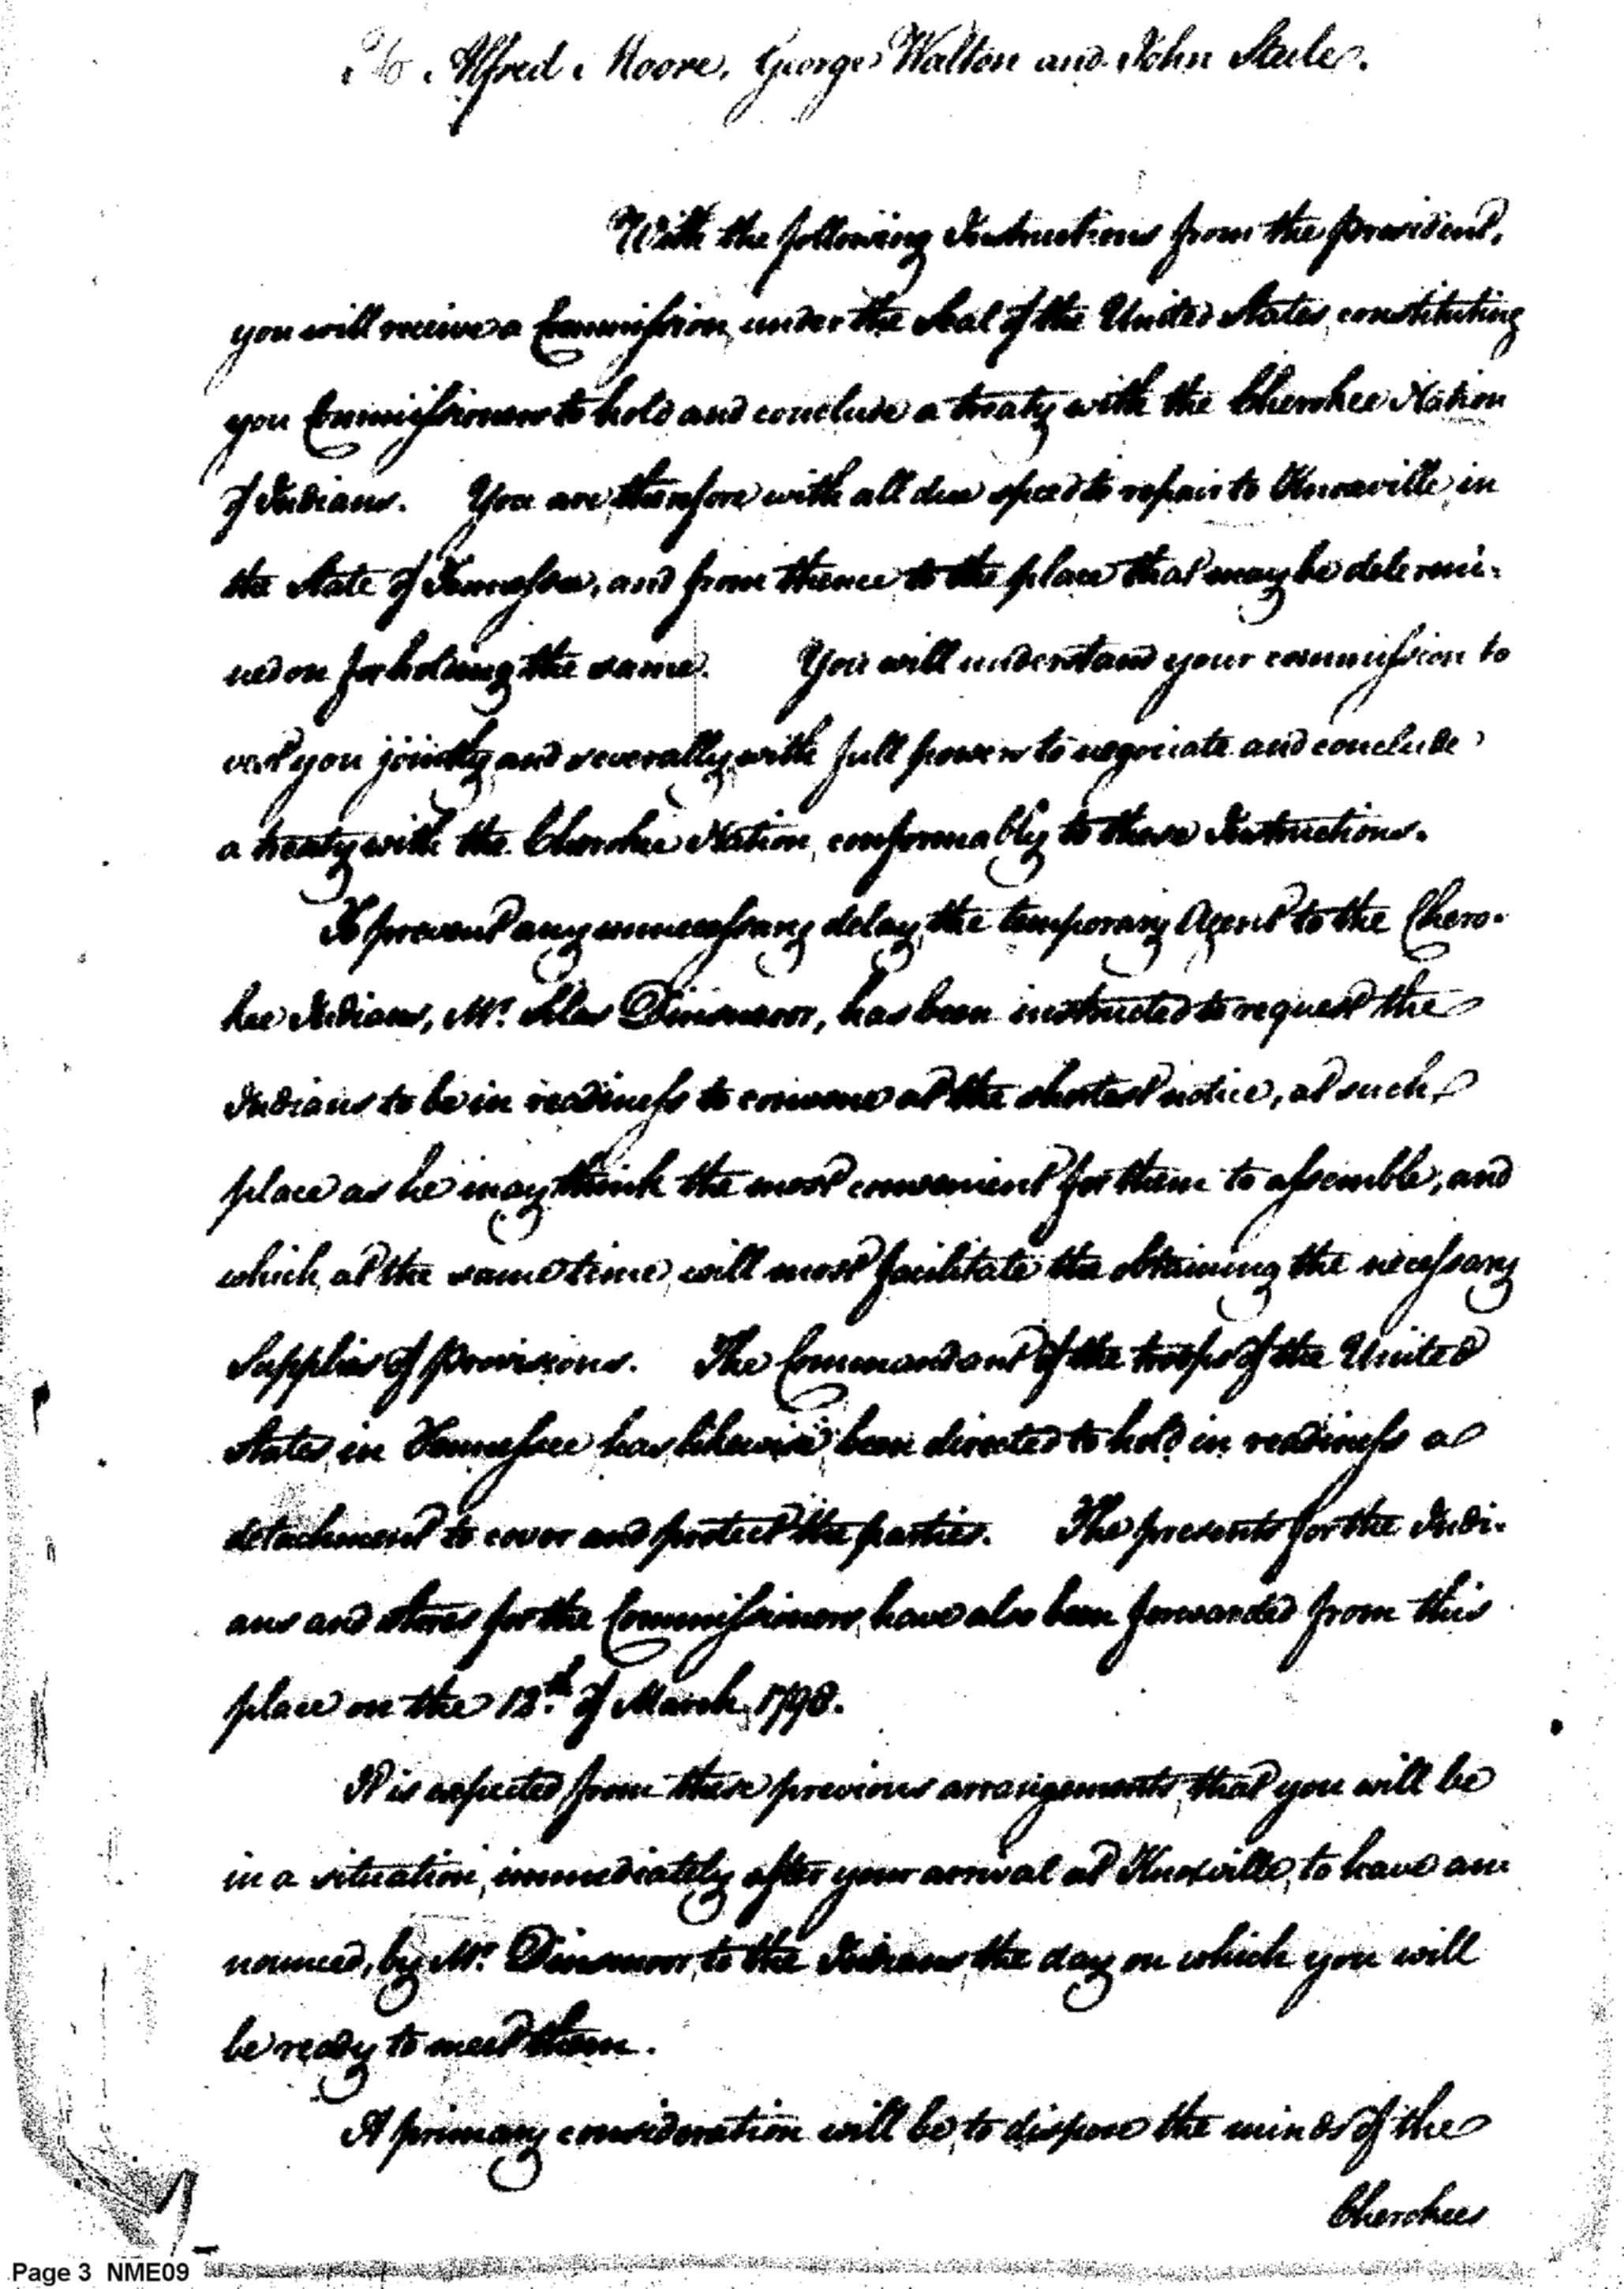 To Alfred Moore, George Walton and John Steele.
With the following Instructions from the President,
you will receive a Commission, under the Seal of the United States, constituting
you Commissioners to hold and conclude a treaty with the Cherokee Nation
of Indians. You are therefore with all due speed to repair to Knoxville, in
the State of Tennessee, and from thence to the place that may be determi-
ned on for holding the same. You will understand your commission to
vest you jointly and severally with full powers to negociate and conclude
a treaty with the Cherokee Nation, conformably to these Instructions.
To prevent any unnecessary delay, the temporary Agent to the Chero-
kee Indians, Mr. Silas Dinsmoor, has been instructed to request the
Indians to be in readiness to convene at the shortest notice, at such
place as he may think the most convenient for them to assemble, and
which, at the same time, will most facilitate the obtaining the necessary
Supplies of provisions. The Commandant of the troops of the United
States in Tennessee has likewise been directed to hold in readiness a
detachment to cover and protect the parties. The presents for the Indi-
ans and stores for the Commissioners, have also been forwarded from this
place on the 13th. of March, 1798.
It is expected from these previous arrangements, that you will be
in a situation, immediately after your arrival at Knoxville, to have an-
nounced, by Mr. Dinsmoor, to the Indians, the day on which you will
be ready to meet them.
A primary consideration will be, to dispose the minds of the
Cherokees
Page 3 NME09